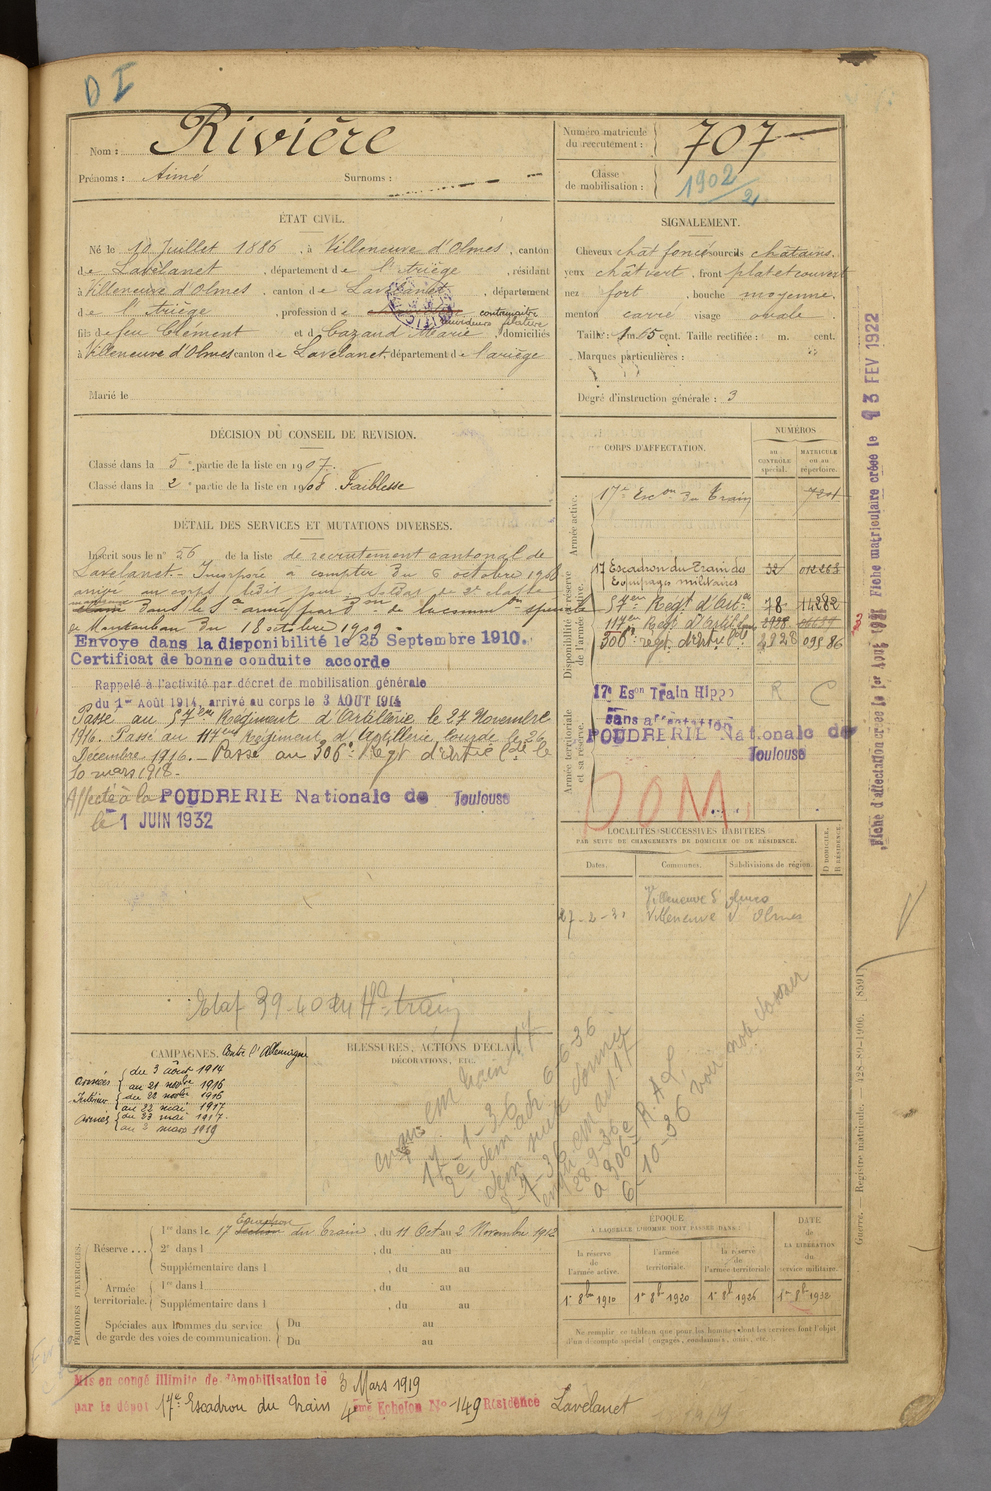 D I
Nom : Rivière
Numéro matricule du recrutement : 707
Prénoms : Aimé Surnoms :
Classe de mobilisation : 1902/2
ÉTAT CIVIL.
Né le 10 Juillet 1886, à Villeneuve d'Olmes, canton
de Lavelanet, département de l'Ariège, résidant
à Villeneuve d'Olmes, canton de Lavelanet, département
de l'Ariège, profession de contremaître
filature
fils de feu Clément et de Cazand Marie, domiciliés
à Villeneuve d'Olmes canton de Lavelanet département de l'ariège
Marié le
SIGNALEMENT.
Cheveux chât foncé sourcils châtains
yeux chât vert, front plat et couvert
nez fort, bouche moyenne.
menton carré visage ovale
Taille : 1 m. 65 cent. Taille rectifiée : m. cent.
Marques particulières :
Degré d'instruction générale : 3
DÉCISION DU CONSEIL DE REVISION.
Classé dans la 5e partie de la liste en 1907.
Classé dans la 2e partie de la liste en 1908. Faiblesse
DÉTAIL DES SERVICES ET MUTATIONS DIVERSES.
Inscrit sous le n° 26 de la liste de recrutement cantonal de
Lavelanet. - Incorporé à compter du 6 octobre 1908
arrivé au corps ledit jour. Soldat de 2e classe
de Montauban du 18 octobre 1909.
Envoye dans la disponibilité le 25 Septembre 1910.
Certificat de bonne conduite accorde
Rappelé à l'activité par décret de mobilisation générale
du 1er Août 1914, arrivé au corps le 3 AOUT 1914
Passé au 57ème Régiment d'Artillerie le 27 Novembre
1916. Passé au 117ème Régiment d'Artillerie lourde le 26
Décembre 1916. - Passé au 306e Régt d'Artie Lde le
10 mars 1918.-
Affecté à la POUDRERIE Nationale de Toulouse
le 1 JUIN 1932
CORPS D'AFFECTATION.
NUMÉROS
au CONTRÔLE spécial.
MATRICULE ou au répertoire.
Armée active.
17e Escon du Train 7201
Disponibilité et réserve de l'armée active.
17 Escadron du Train des Equipages militaires 32 012263
57ème Régt d'Artie 78 14282
117ème Régt d'Artill
306e régt d'Artie Lde 2228 09586
Armée territoriale et sa réserve.
17e Eson Train Hippo R C
Sans affectation
POUDRERIE Nationale de
Toulouse
DOM.
LOCALITÉS SUCCESSIVES HABITÉES
PAR SUITE DE CHANGEMENTS DE DOMICILE OU DE RÉSIDENCE.
Dates. Communes. Subdivisions de région. D DOMICILE. R RÉSIDENCE.
Villeneuve d'Olmes
27-2-31 Villeneuve d'Olmes
CAMPAGNES. Contre l'Allemagne
Armées du 3 août 1914
au 21 novbre 1916
Intérieur du 22 novbre 1916
au 22 mai 1917
Armées du 23 mai 1917
au 2 mars 1919
BLESSURES, ACTIONS D'ÉCLAT,
DÉCORATIONS, ETC.
voir note dossier
PÉRIODES D'EXERCICES.
Réserve ... 1re dans le 17 Escadron du Train, du 11 Oct au 2 Novembre 1912
2e dans l , du au
Supplémentaire dans l , du au
Armée territoriale. 1re dans l , du au
Supplémentaire dans l , du au
Spéciales aux hommes du service de garde des voies de communication. Du au
Du au
ÉPOQUE
À LAQUELLE L'HOMME DOIT PASSER DANS :
la réserve de l'armée active. l'armée territoriale. la réserve de l'armée territoriale.
DATE de LA LIBÉRATION du service militaire.
1er 8bre 1910 1er 8bre 1920 1er 8bre 1926 1er 8bre 1938
Ne remplir ce tableau que pour les hommes dont les services font l'objet
d'un décompte spécial (engagés, condamnés, omis, etc.).
Mis en congé illimité de démobilisation le 3 Mars 1919
par le dépot 17e Escadron du Train 4ème Echelon No 149 Résidence Lavelanet
Fiche d'affectation créée le 1er Août 1921 Fiche matriculaire créée le 13 FEV 1922
Guerre. — Registre matricule. — 428-89-1906. [8591]